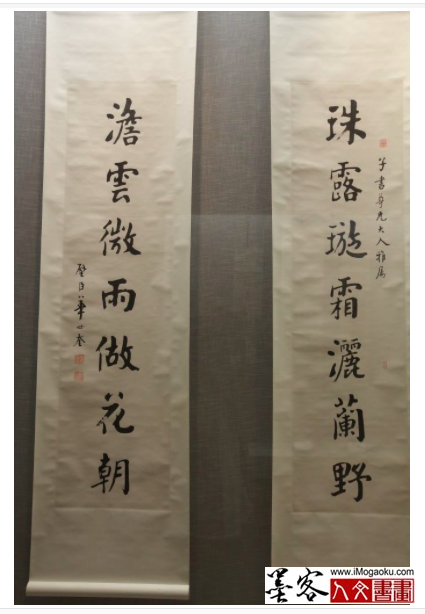 珠露璇霜灑蘭野
書尊兄大人雅屬
澹雲微雨做花朝
璧臣華世奎
www.iMogaoku.com
墨客
人文書畫